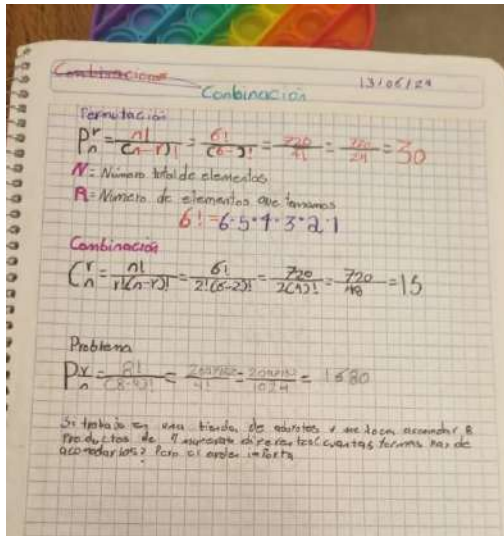 Combinaciones 13/06/24
Conbinación
Permutación
P r n = n! / (n-r)! = 6! / (6- )! = 720 / 4! = 720 / 24 = 30
N = Número total de elementos
R = Número de elementos que tomamos
6! = 6·5·4·3·2·1
Combinación
C r n = n! / r!(n-r)! = 6! / 2!(6-2)! = 720 / 2(4)! = 720 / 48 = 15
Problema
P r n = 8! / (8-4)! = / 4! = = 1680
Si trabajo en una tienda de abarrotes y me tocan acomodar 8
Productos de formas hay de
acomodarlos? Pero el orden importa